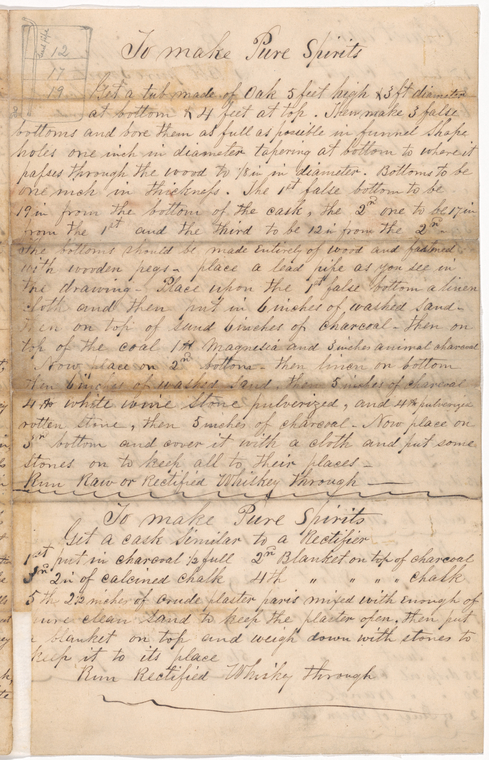 12
17
19
To make Pure Spirits
Get a tub made of Oak 5 feet high & 3 ft diameter
at bottom & 4 feet at top. Then make 3 false
bottoms and bore them as full as possible in funnel shape
holes one inch in diameter tapering at bottom to where it
passes through the wood to 1/8 in in diameter. Bottoms to be
one inch in thickness. The 1st false bottom to be
19 in from the bottom of the cask, the 2nd one to be 17 in
from the 1st and the third to be 12 in from the 2nd
The bottoms should be made entirely of wood and fastened
with wooden pegs - place a lead pipe as you see in
the drawing - Place upon the 1st false bottom a linen
cloth and then put in 6 inches of washed sand -
then on top of sand 6 inches of charcoal - then on
top of the coal 1 lb magnesia and 3 inches animal charcoal
Now place on 2nd bottom - then linen on bottom
then 6 inches of washed sand, then 5 inches of charcoal
4 lb white wine stone pulverized, and 4 lb pulverized
rotten stone, then 5 inches of charcoal - Now place on
3rd bottom and cover it with a cloth and put some
stones on to keep all to their places -
Run Raw or Rectified Whiskey through -
To make Pure Spirits
Get a cask similar to a Rectifier
1st put in charcoal 1/2 full 2nd Blanket on top of charcoal
3rd 2 in of calcined chalk 4th " " " " chalk
5th 2 1/2 inches of crude plaster paris mixed with enough of
pure clean sand to keep the plaster open, then put
a blanket on top and weigh down with stones to
keep it to its place
Run Rectified Whisky through